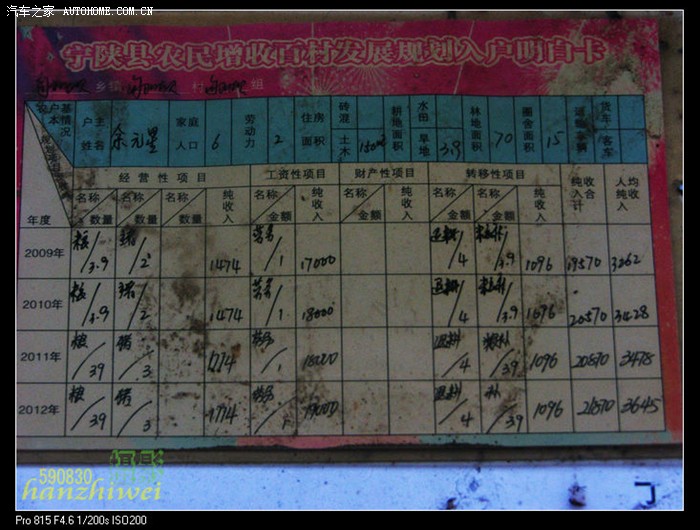 汽车之家 AUTOHOME.COM.CN
宁陕县农民增收百村发展规划入户明白卡
乡镇 村 组
农户基本情况 户主姓名 余元星 家庭人口 6 劳动力 2 住房面积 砖混 土木 耕地面积 水田 旱地 3.9 林地面积 70 圈舍面积 15 运输车辆 货车 客车
年度 经营性项目 工资性项目 财产性项目 转移性项目 纯收入合计 人均纯收入
名称 数量 名称 数量 纯收入 名称 金额 纯收入 名称 金额 名称 金额 名称 金额 纯收入
2009年 粮/3.9 猪/2 1474 劳务/1 17000 退耕/4 3.9 1096 19570 3262
2010年 粮/3.9 猪/2 1474 劳务/1 18000 退耕/4 3.9 1096 20570 3428
2011年 粮/39 猪/3 1774 劳务/1 18000 退耕/4 粮补/39 1096 20870 3478
2012年 粮/39 猪/3 1774 劳务/1 19000 退耕/4 39 1096 21870 3645
590830 摄影
hanzhiwei
Pro 815 F4.6 1/200s ISO200